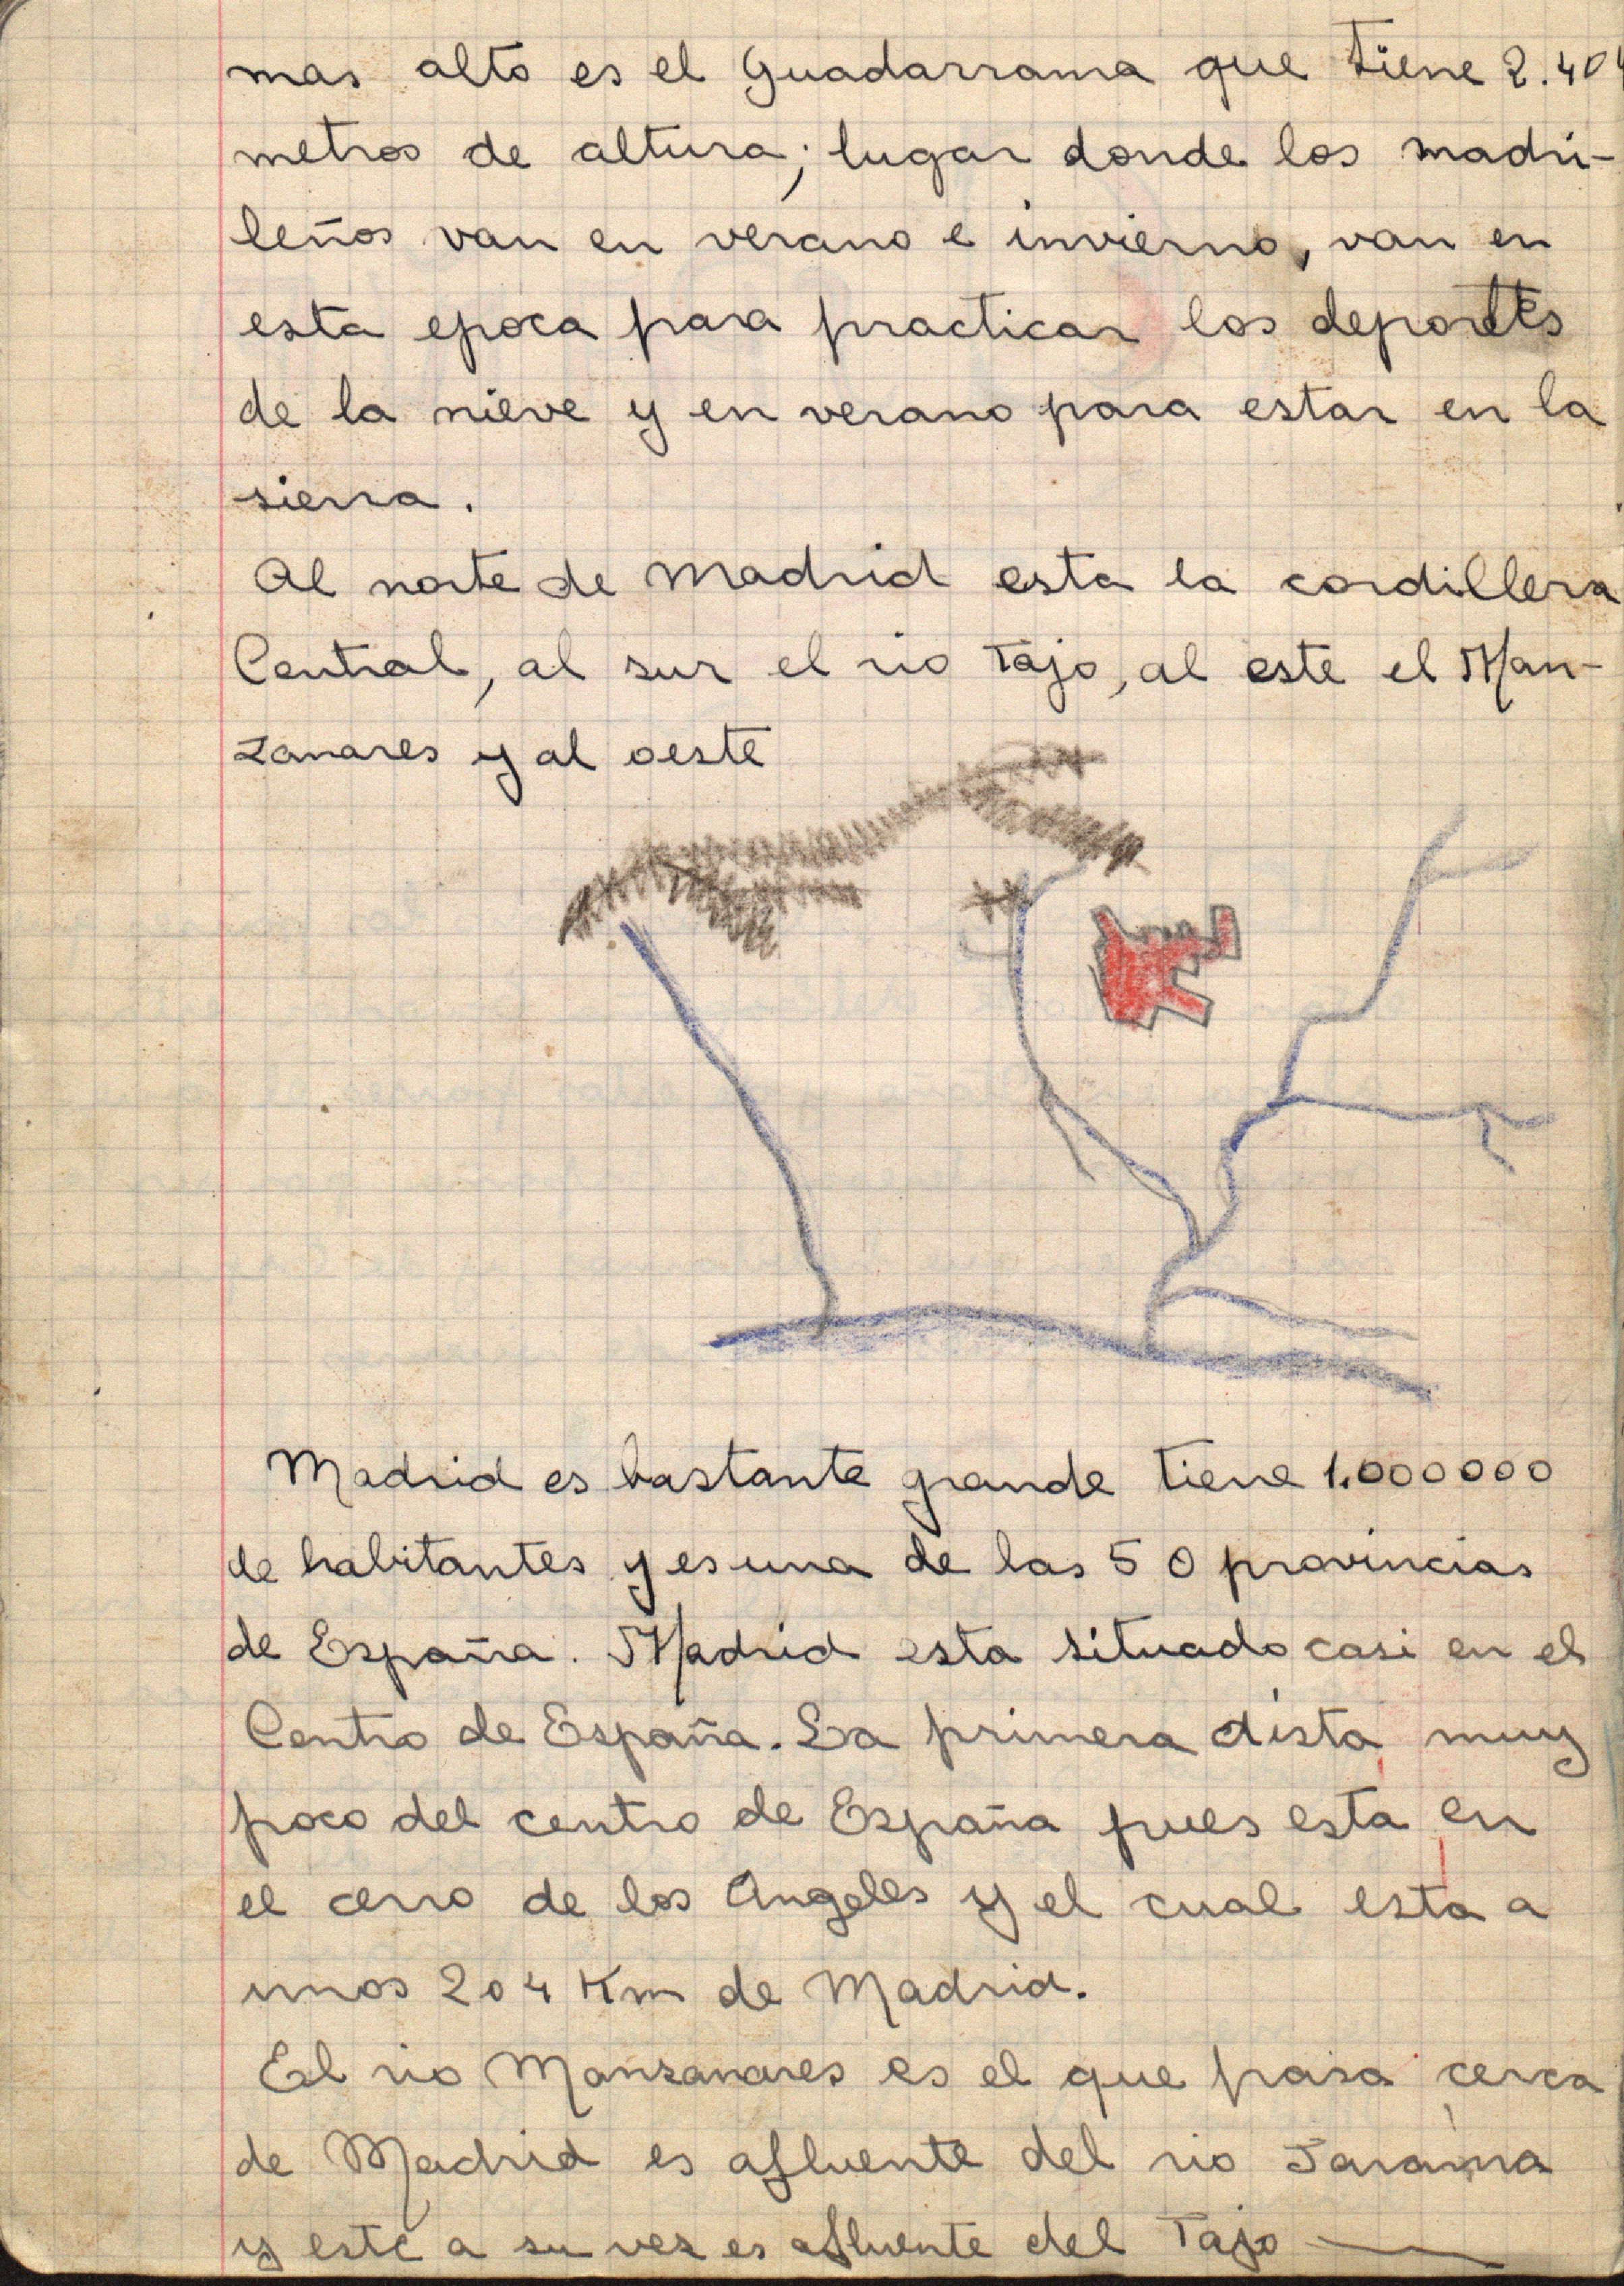 mas alto es el Guadarrama que tiene 2.404
metros de altura; lugar donde los madri-
leños van en verano e invierno, van en
esta epoca para practicar los deportes
de la nieve y en verano para estar en la
sierra.
Al norte de Madrid esta la cordillera
Central, al sur el rio Tajo, al este el Man-
zanares y al oeste
Madrid es bastante grande tiene 1.000000
de habitantes y es una de las 50 provincias
de España. Madrid esta situado casi en el
Centro de España. La primera dista muy
poco del centro de España pues esta en
el cerro de los Angeles y el cual esta a
unos 204 Km de Madrid.
El rio Manzanares es el que pasa cerca
de Madrid es afluente del rio Jarama
y este a su vez es afluente del Tajo